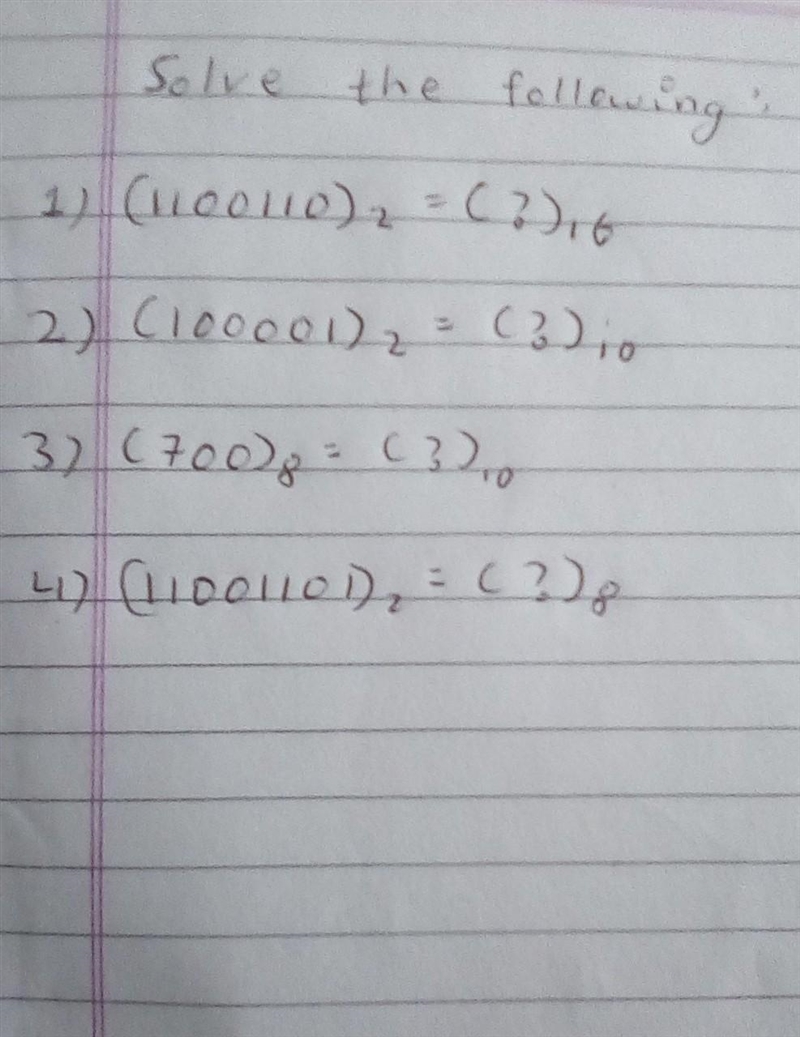 Solve the following:
1) (1100110)₂ = (?)₁₆
2) (100001)₂ = (?)₁₀
3) (700)₈ = (?)₁₀
4) (11001101)₂ = (?)₈